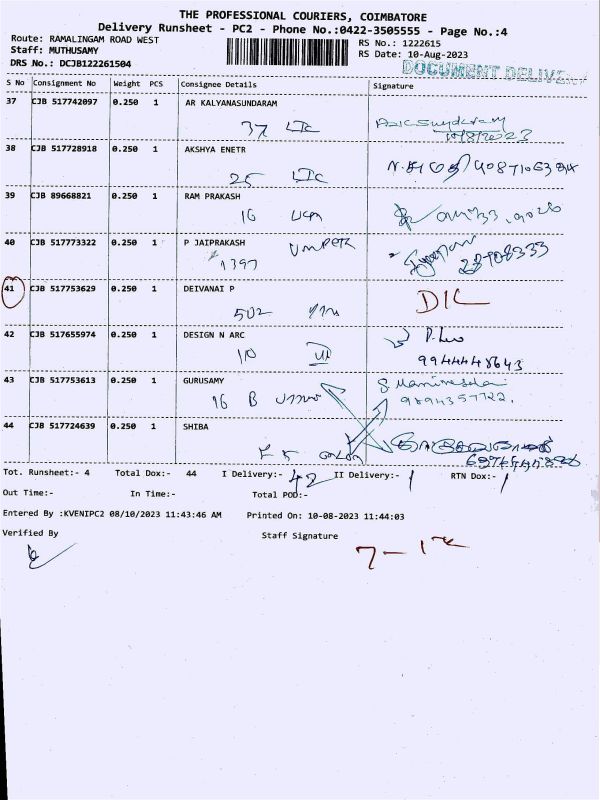 THE PROFESSIONAL COURIERS, COIMBATORE
Delivery Runsheet - PC2 - Phone No.:0422-3505555 - Page No.:4
Route: RAMALINGAM ROAD WEST
RS No.: 1222615
Staff: MUTHUSAMY
RS Date: 10-Aug-2023
DRS No.: DCJB122261504
DOCUMENT DELIVE
S No Consignment No Weight PCS Consignee Details Signature
37 CJB 517742097 0.250 1 AR KALYANASUNDARAM
37
10/8/2023
38 CJB 517728918 0.250 1 AKSHYA ENETR
25
39 CJB 89668821 0.250 1 RAM PRAKASH
16
40 CJB 517773322 0.250 1 P JAIPRAKASH
1397
41 CJB 517753629 0.250 1 DEIVANAI P
502 DIL
42 CJB 517655974 0.250 1 DESIGN N ARC
10
9944448643
43 CJB 517753613 0.250 1 GURUSAMY
16 B
9894357722.
44 CJB 517724639 0.250 1 SHIBA
Tot. Runsheet:- 4 Total Dox:- 44 I Delivery:- 42 II Delivery:- 1 RTN Dox:- 1
Out Time:- In Time:- Total POD:-
Entered By :KVENIPC2 08/10/2023 11:43:46 AM Printed On: 10-08-2023 11:44:03
Verified By Staff Signature